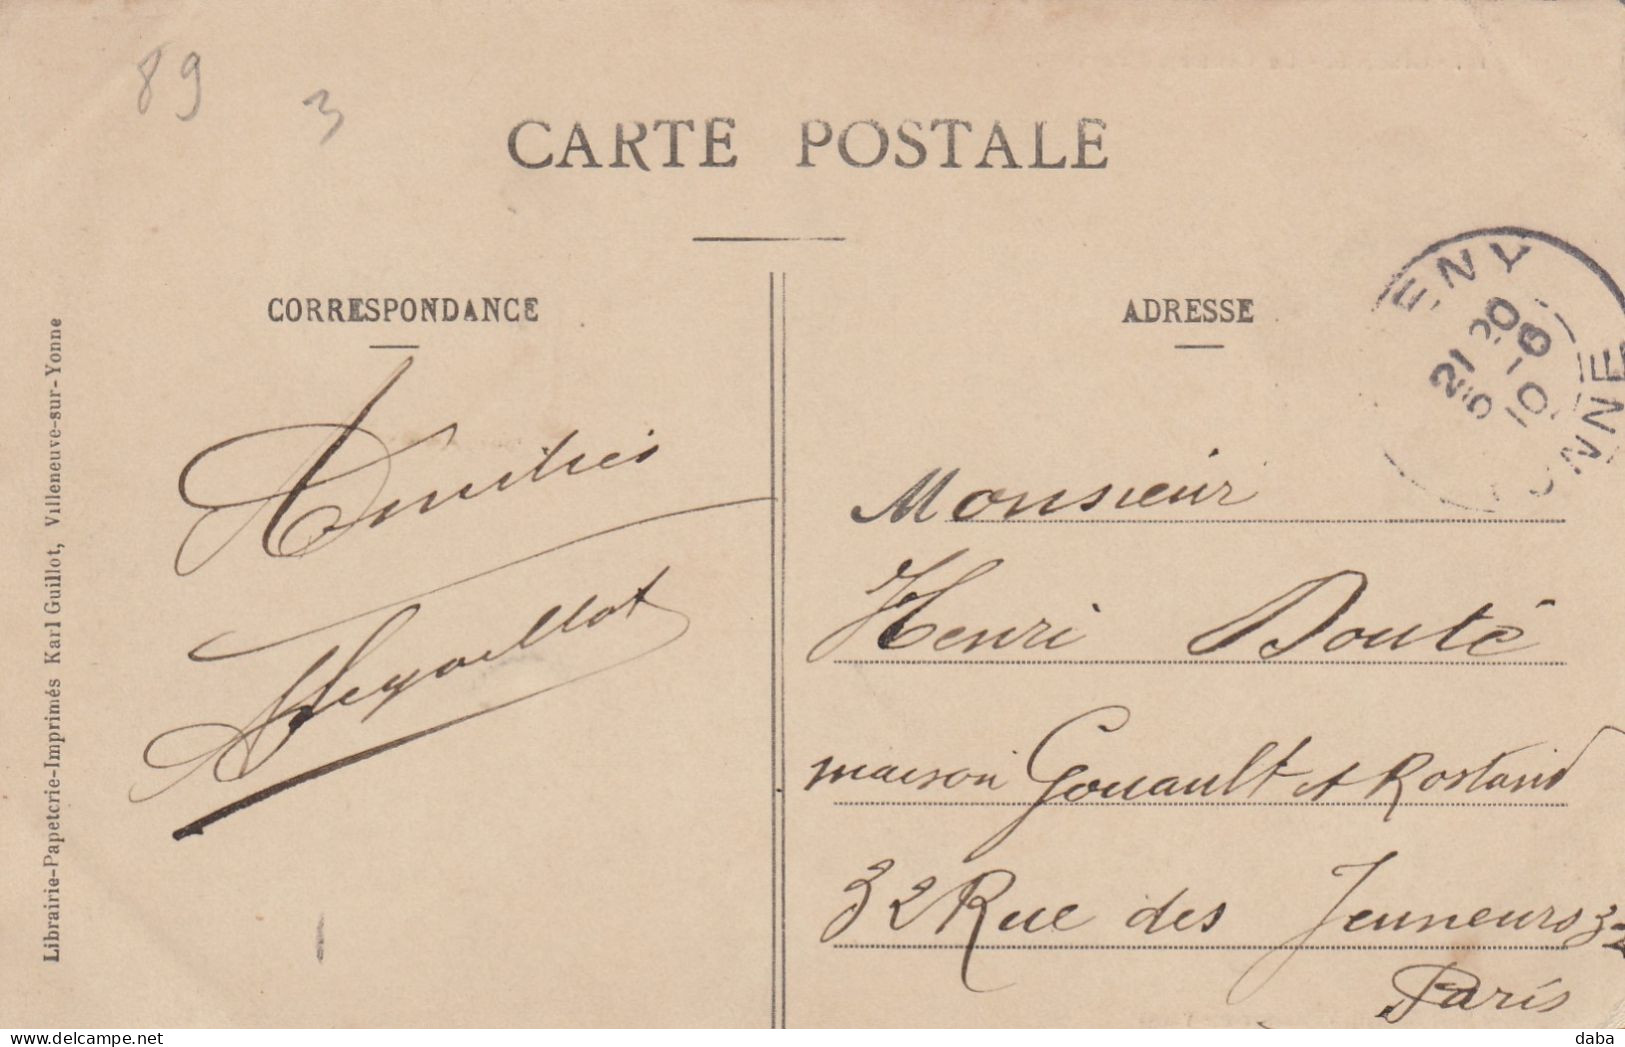 89
3
CARTE POSTALE
CORRESPONDANCE
ADRESSE
Librairie-Papeterie-Imprimés Karl Guillot, Villeneuve-sur-Yonne
ENY
21 20
5 - 6
10
YONNE
Amitiés
Monsieur
Henri Bouté
maison Gouault et Rostand
32 Rue des Jeuneurs 32
Paris
delcampe.net
daba